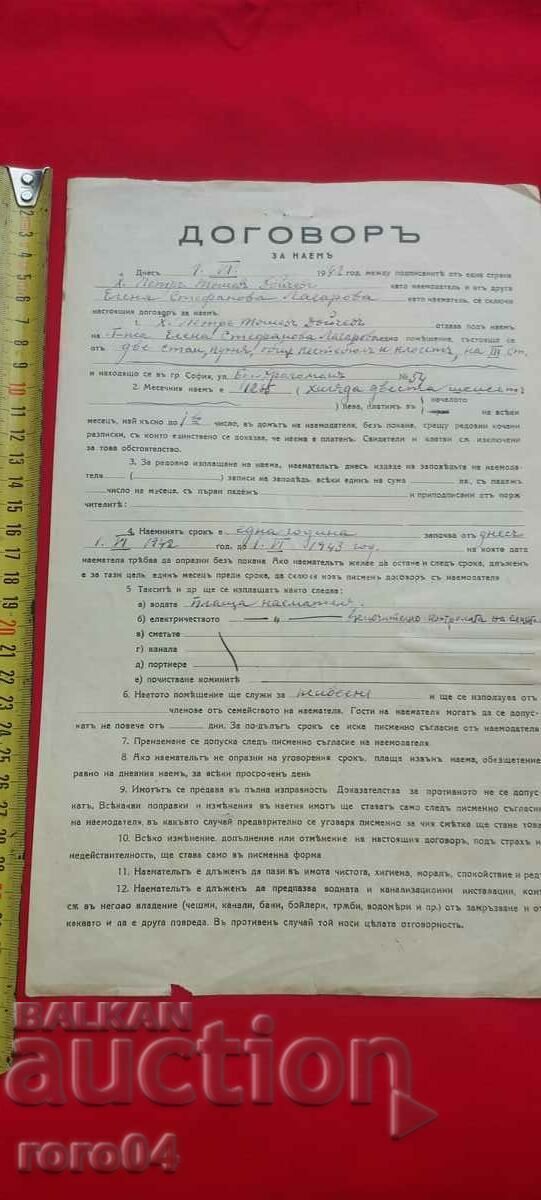 ДОГОВОРЪ
ЗА НАЕМЪ
Днесъ 1. VI. 1942 год. между подписанитѣ отъ една страна
Х. Петръ Тошевъ
като наемодатель и отъ друга
Елена Стефанова Лагарова като наематель, се сключи
настоящия договоръ за наемъ.
1. Х. Петръ Тошевъ отдава подъ наемъ
на Г-жа Елена Стефанова Лагарова едно помѣщение, състояще се
отъ две стаи, кухня, и клозетъ, на III ет.
и находящо се въ гр. София, ул. Драгоманъ № 54
2. Месечния наемъ е 1206 (Хиляда двеста шесть
) лева, платимъ въ началото на всѣки
месецъ, най късно до 1во число, въ домътъ на наемодателя, безъ покана, срещу редовни кочани
разписки, съ които единствено се доказва, че наема е платенъ. Свидетели и клетви сѫ изключени
за това обстоятелство.
3. За редовно изплащане на наема, наемательтъ днесъ издаде на заповѣдьта на наемода-
теля ( ) записи на заповѣдь, всѣки единъ на сума лв., съ падежъ
число на месеца, съ първи падежъ и приподписани отъ порѫ
чителитѣ:
4. Наемниятъ срокъ е една година започва отъ днесъ
1. VI 1942 год. до 1. VI 1943 год. на която дата
наемателя трѣбва да опразни безъ покана. Ако наемательтъ желае да остане и следъ срока, длъженъ
е за тази цель, единъ месецъ преди срока, да сключи новъ писменъ договоръ съ наемодателя
5. Таксите и др. ще се изплащатъ както следва:
а) водата плаща наемателя.
б) електричеството — " —
в) сметьта
г) канала
д) портиера
е) почистване коминитѣ
6. Наетото помѣщение ще служи за живеене и ще се използува отъ
членове отъ семейството на наемателя. Гости на наемателя могатъ да се допус-
катъ не повече отъ дни. За по-дълъгъ срокъ се иска писменно съгласие отъ наемодателя
7. Пренаемане се допуска следъ писменно съгласие на наемодателя
8. Ако наемательтъ не опразни на уговорения срокъ, плаща извънъ наема, обезщетение
равно на дневния наемъ, за всѣки просроченъ день
9. Имотътъ се предава въ пълна изправность. Доказателства за противното не се допус-
катъ. Всѣкакви поправки и измѣнения въ наетия имотъ ще ставатъ само следъ писменно съгласие
на наемодателя, въ какъвто случай предварително се уговаря писменно за чия смѣтка ще стане това
10. Всѣко измѣнение, допълнение или отмѣнение на настоящия договоръ, подъ страхъ н
недействителность, ще става само въ писменна форма
11. Наемательтъ е длъженъ да пази въ имота чистота, хигиена, моралъ, спокойствие и редъ
12. Наемательтъ е длъженъ да предпазва водната и канализационни инсталации, коит
сѫ въ негово владение (чешми, канали, бани, бойлери, трѫби, водомѣри и пр.) отъ замръзване и от
каквато и да е друга повреда. Въ противенъ случай той носи цѣлата отговорность.
BALKAN
auction
roro04